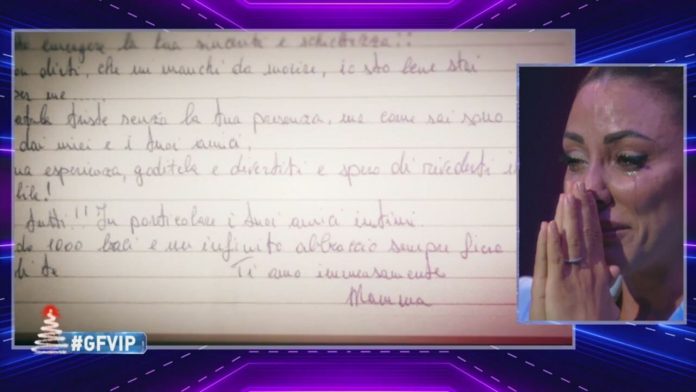 emergere la tua sincerità e schiettezza!!
dirti, che mi manchi da morire, io sto bene stai
per me
triste senza la tua presenza, ma come sai sono
dai miei e i tuoi amici,
esperienza, goditela e divertiti e spero di rivederti
tutti!! In particolare i tuoi amici intimi.
1000 baci e un infinito abbraccio sempre fiera
di te
Ti amo immensamente
Mamma
#GFVIP